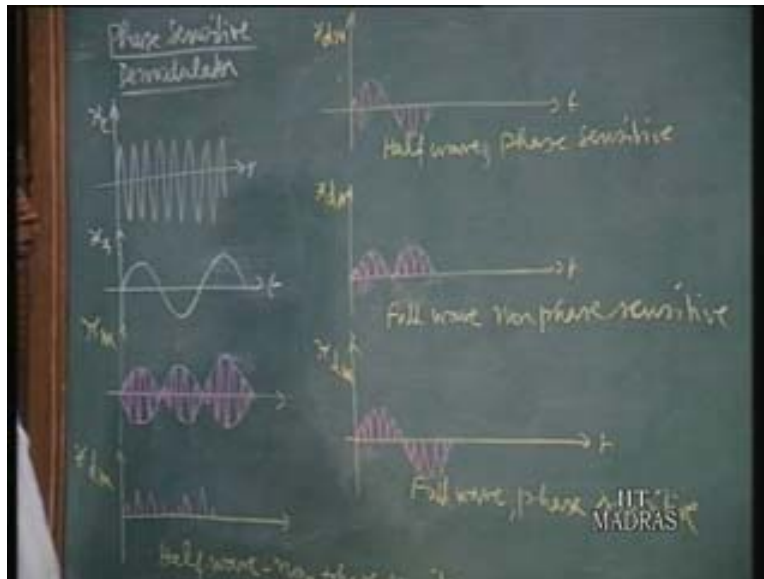 Phase Sensitive
Demodulator
xc
t
xs
t
xm
xdm
Half wave - non phase
xdm
t
Half wave, phase sensitive
xdm
t
Full wave non phase sensitive
xdm
t
Full wave, phase
IIT
MADRAS